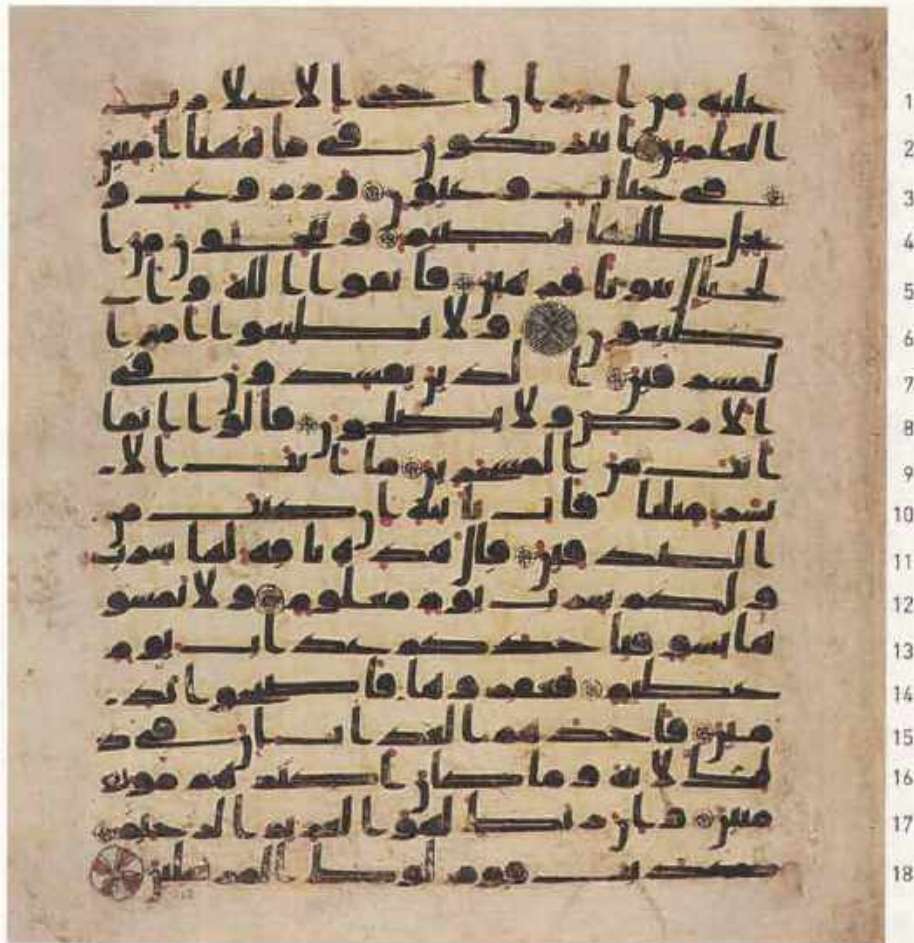 1 عليه من اجر ان اجرى الا علا رب
2 العلمين اتتركون فى ما ههنا امنين
3 فى جنات وعيون وزروع و
4 نخل طلعها هضيم وتنحتون من ا
5 لجبال بيوتا فرهين فاتقوا الله وا
6 طيعون ولا تطيعوا امر ا
7 لمسرفين الذين يفسدون فى
8 الارض ولا يصلحون قالوا انما
9 انت من المسحرين ما انت الا
10 بشر مثلنا فات باية ان كنت من
11 الصدقين قال هذه ناقة لها شرب
12 ولكم شرب يوم معلوم ولا تمسو
13 ها بسو فياخذكم عذاب يوم
14 عظيم فعقروها فاصبحوا ند
15 مين فاخذهم العذاب ان فى ذ
16 لك لاية وما كان اكثرهم مو
17 منين وان ربك لهو العزيز الرحيم
18 كذبت قوم لوط المرسلين